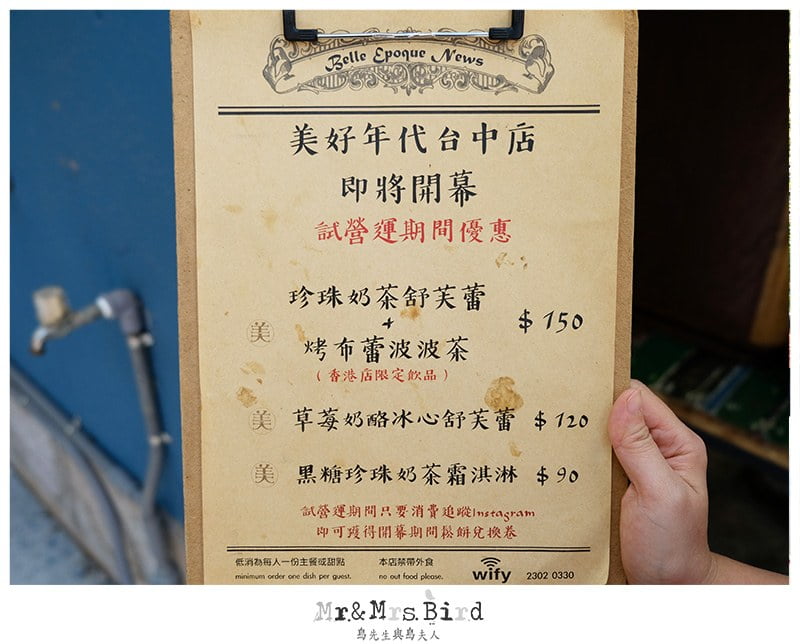 Belle Epoque News
美好年代台中店
即將開幕
試營運期間優惠
珍珠奶茶舒芙蕾
+
美
烤布蕾波波茶
$ 150
(香港店限定飲品)
美 草莓奶酪冰心舒芙蕾 $ 120
美 黑糖珍珠奶茶霜淇淋 $ 90
試營運期間只要消費追蹤Instagram
即可獲得開幕期間鬆餅兌換卷
低消為每人一份主餐或甜點 本店禁帶外食
minimum order one dish per guest. no out food please. wify 2302 0330
Mr.&Mrs.Bird
鳥先生與鳥夫人